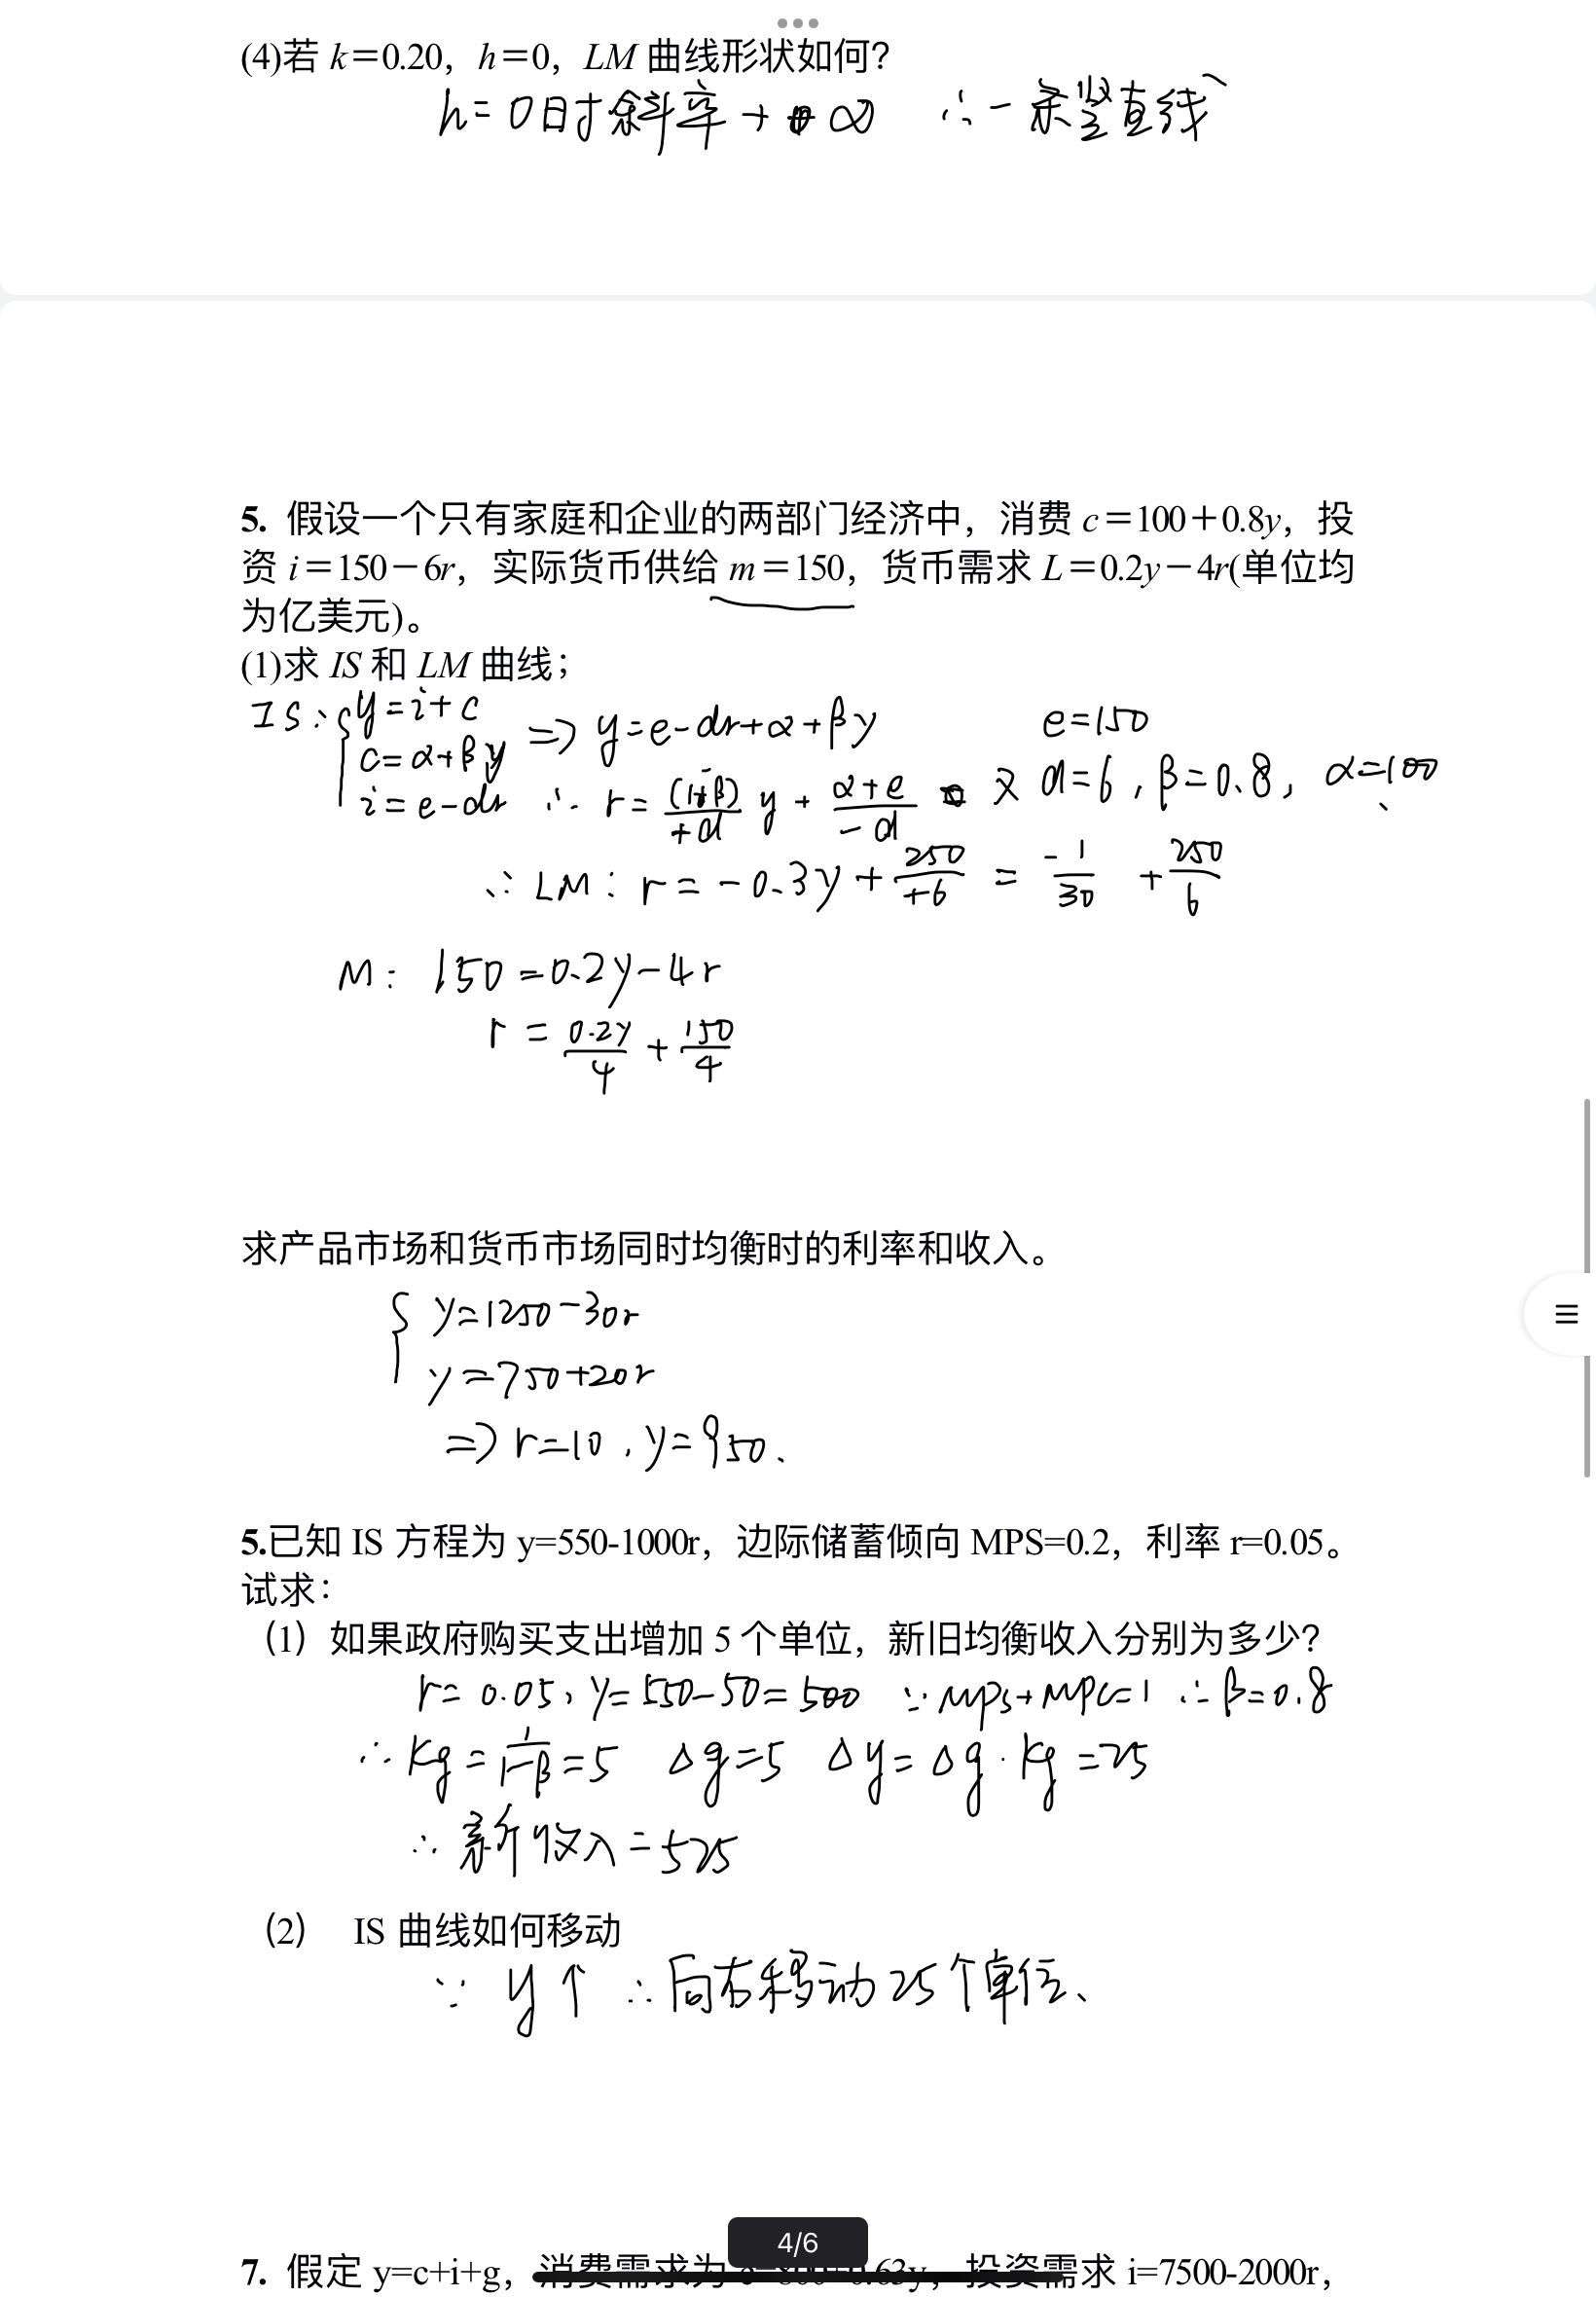 (4)若 k＝0.20，h＝0，LM 曲线形状如何？
h=0时斜率→∞ ∴一条竖直线
5. 假设一个只有家庭和企业的两部门经济中，消费 c＝100＋0.8y，投
资 i＝150－6r，实际货币供给 m＝150，货币需求 L＝0.2y－4r(单位均
为亿美元)。
(1)求 IS 和 LM 曲线；
IS: { y=i+c
c=α+βy ⇒ y=e-dr+α+βy e=150
i=e-dr ∴ r= (1-β)/+d y + α+e/-d 又 d=6, β=0.8, α=100、
∴ LM: r= -0.3y + 250/+6 = -1/30 + 250/6
M: 150=0.2y-4r
r = 0.2y/4 + 150/4
求产品市场和货币市场同时均衡时的利率和收入。
{ y=1250-30r
y=750+20r
⇒ r=10, y=950.
5.已知 IS 方程为 y=550-1000r，边际储蓄倾向 MPS=0.2，利率 r=0.05。
试求：
(1) 如果政府购买支出增加 5 个单位，新旧均衡收入分别为多少？
r=0.05, y=550-50=500 ∵mps+mpc=1 ∴β=0.8
∴ kg = 1/1-β = 5 Δg=5 Δy=Δg·kg=25
∴ 新收入=525
(2) IS 曲线如何移动
∵ y↑ ∴向右移动25个单位、
4/6
7. 假定 y=c+i+g，消费需求为 c=800+0.63y，投资需求 i=7500-2000r，